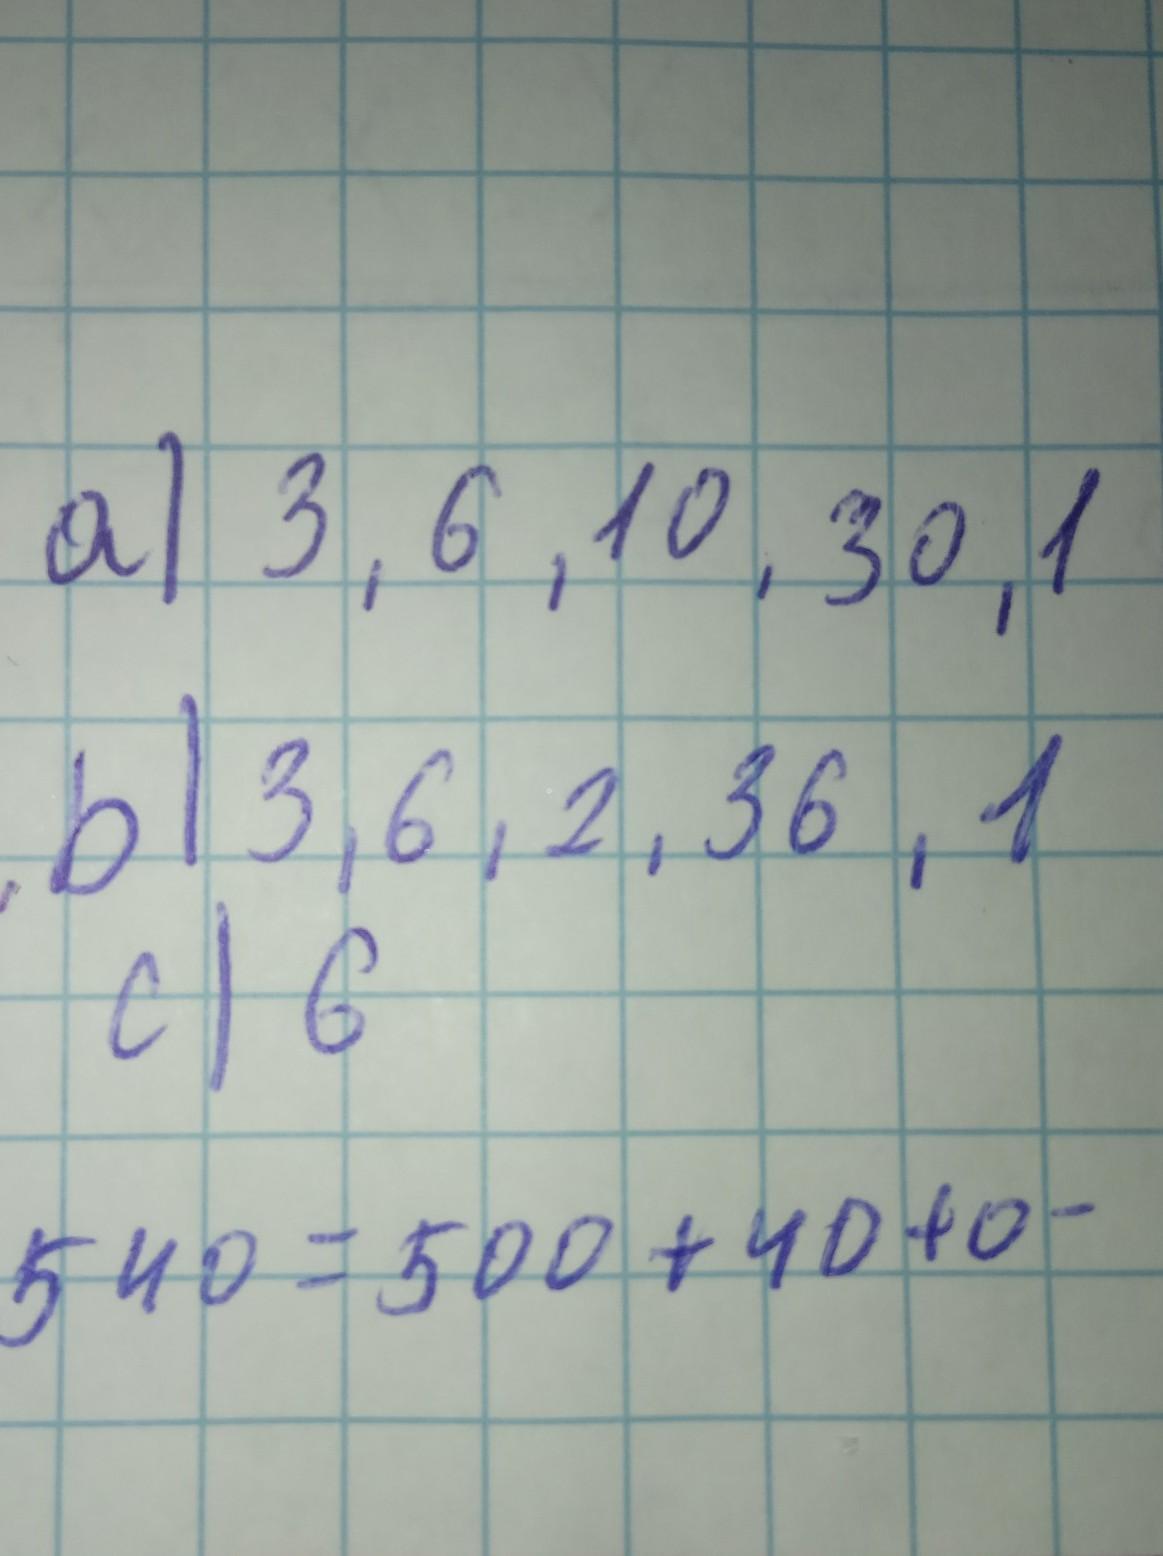 a) 3, 6, 10, 30, 1
, b) 3, 6, 2, 36, 1
c) 6
540 = 500 + 40 + 0 -